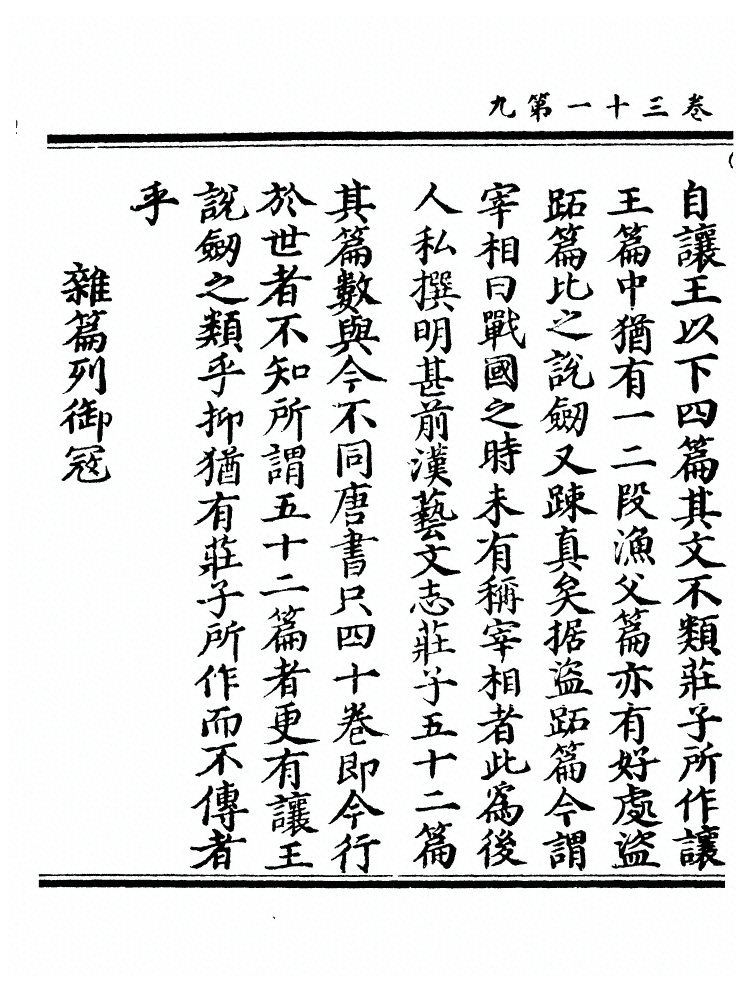 卷三十一第九
自讓王以下四篇其文不類莊子所作讓
王篇中猶有一二段漁父篇亦有好處盜
跖篇比之說劒又踈真矣据盜跖篇今謂
宰相曰戰國之時未有稱宰相者此為後
人私撰明甚前漢藝文志莊子五十二篇
其篇數與今不同唐書只四十卷即今行
於世者不知所謂五十二篇者更有讓王
說劒之類乎抑猶有莊子所作而不傳者
乎
雜篇列御寇